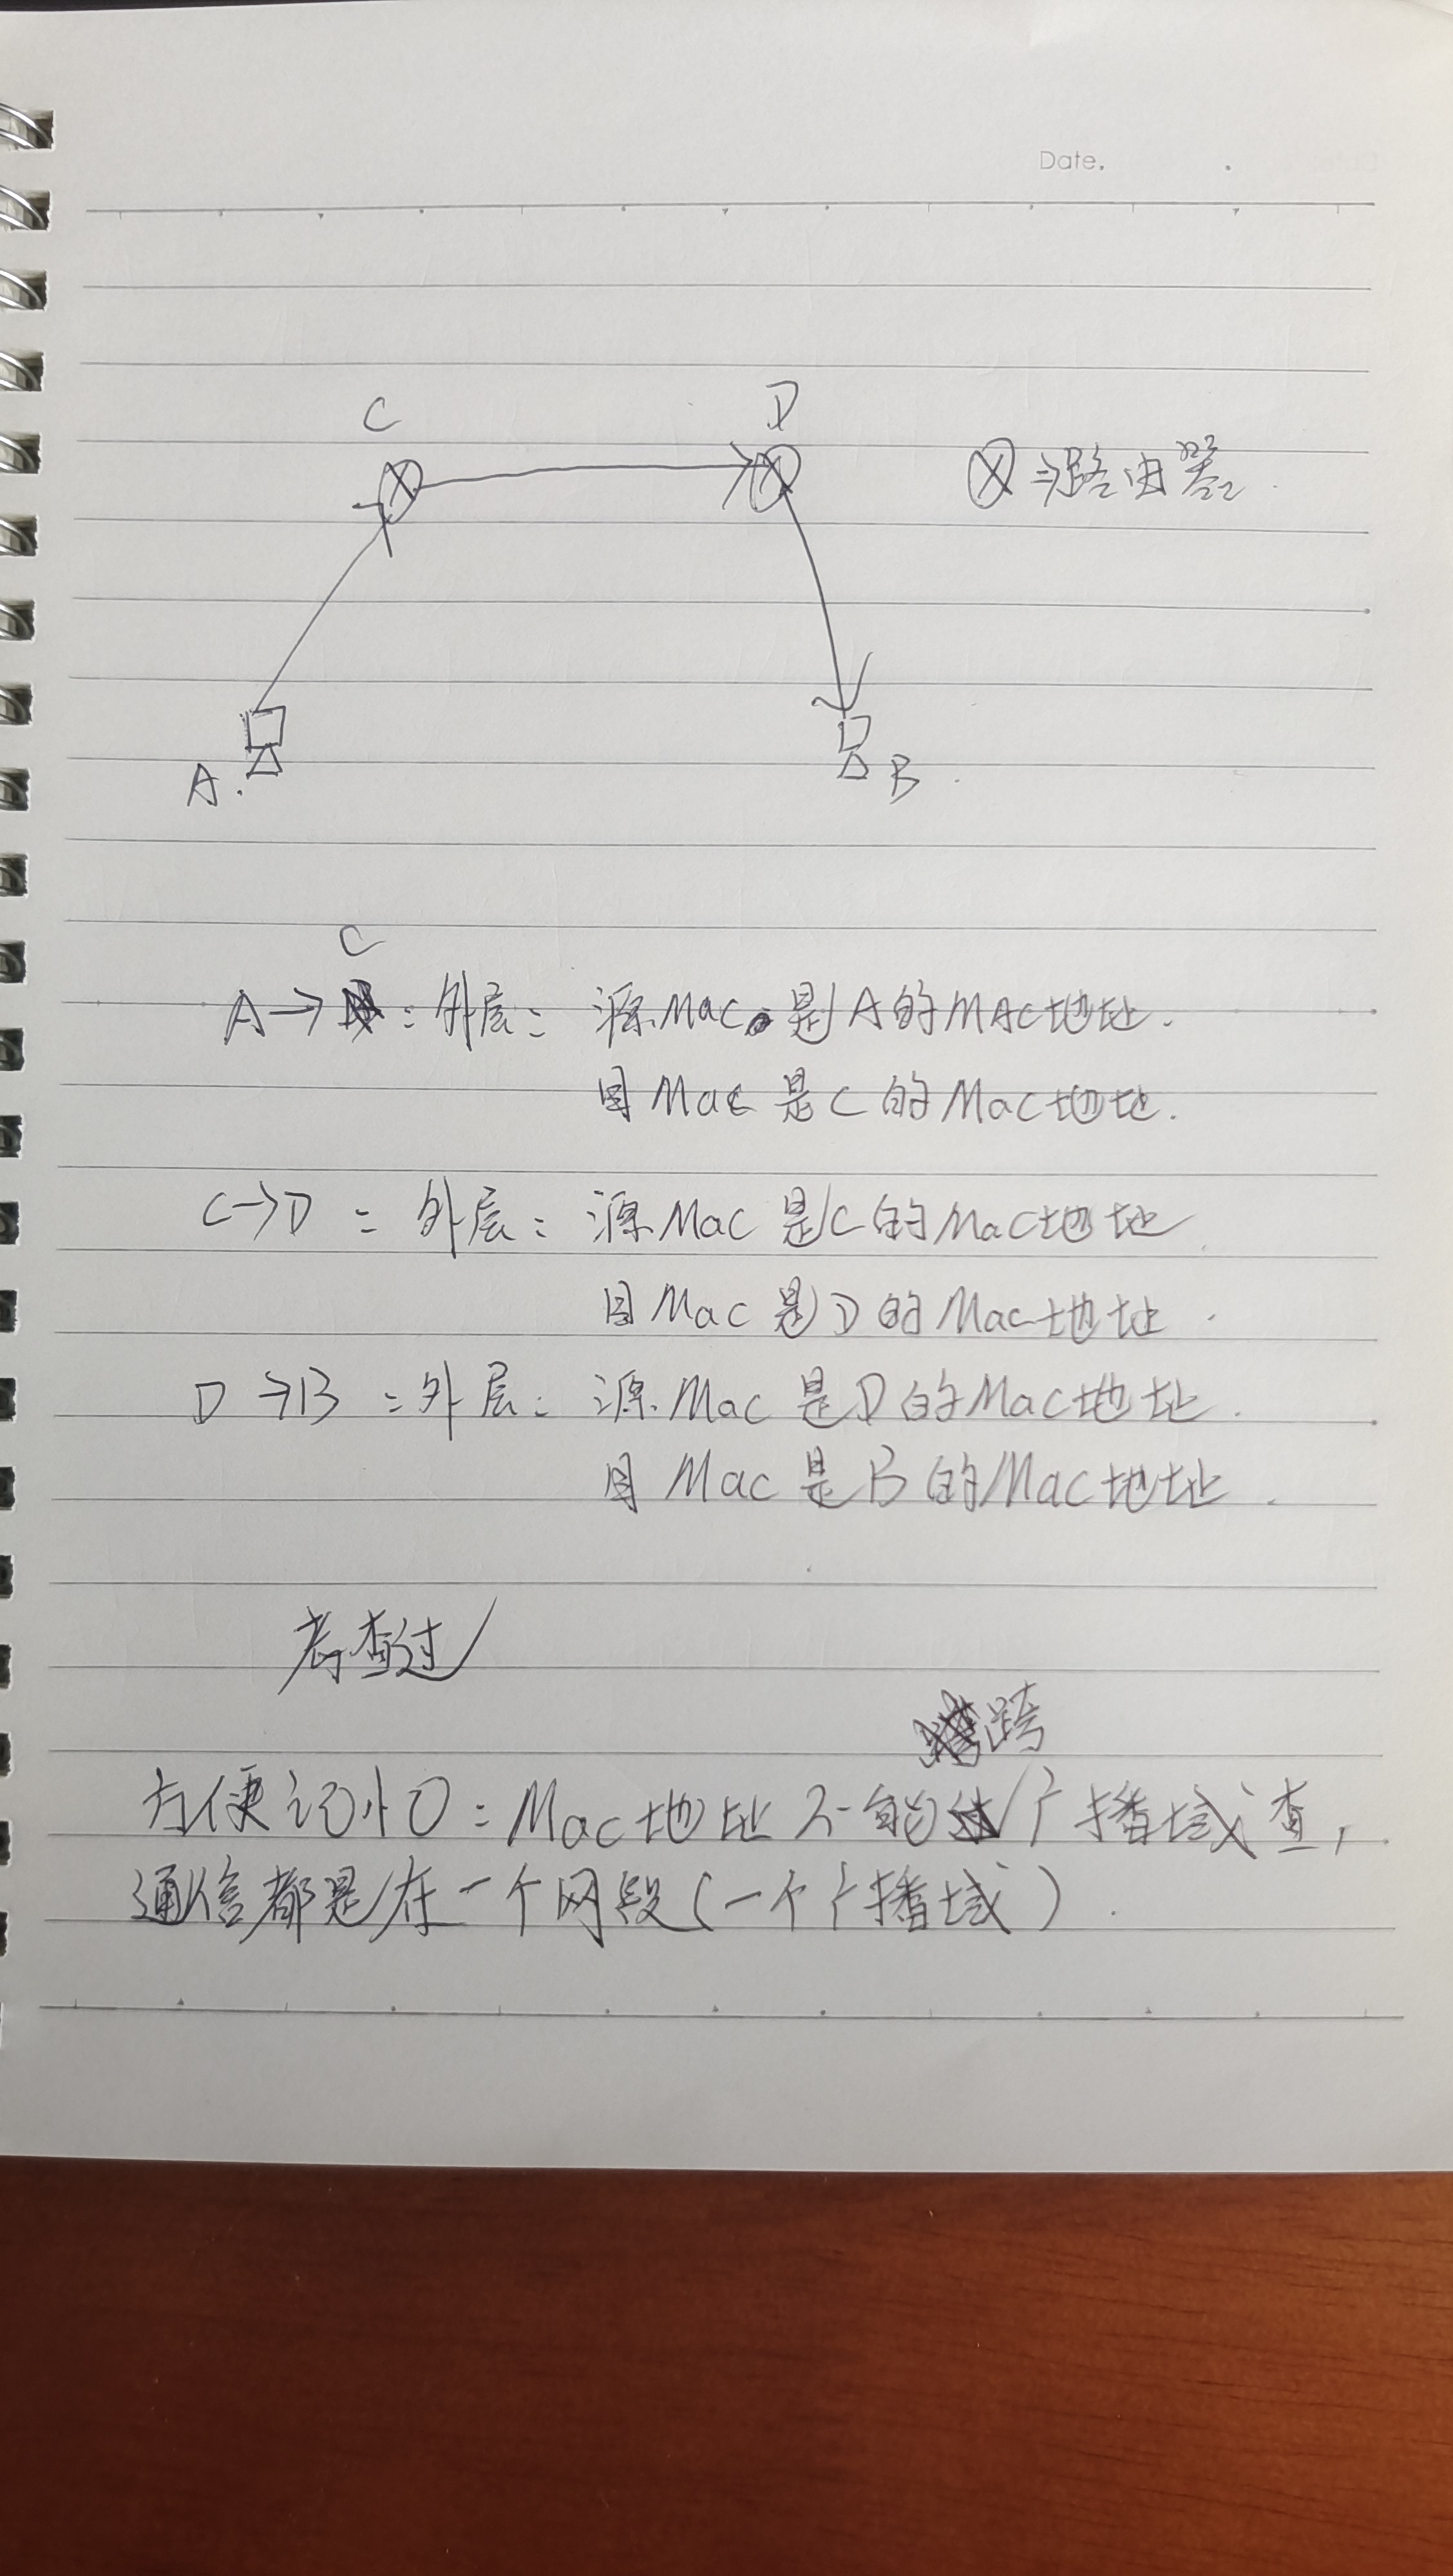 Date.
C D
⊗⇒路由器.
A. B.
C
A→ : 外层: 源Mac是A的MAC地址.
目Mac 是C的Mac地址.
C→D : 外层: 源Mac是C的Mac地址
目Mac 是D的Mac地址.
D→B : 外层: 源Mac是D的Mac地址.
目Mac 是B的Mac地址.
考查过
跨
方便记忆: Mac地址不能广播域查,
通信都是在一个网段(一个广播域).